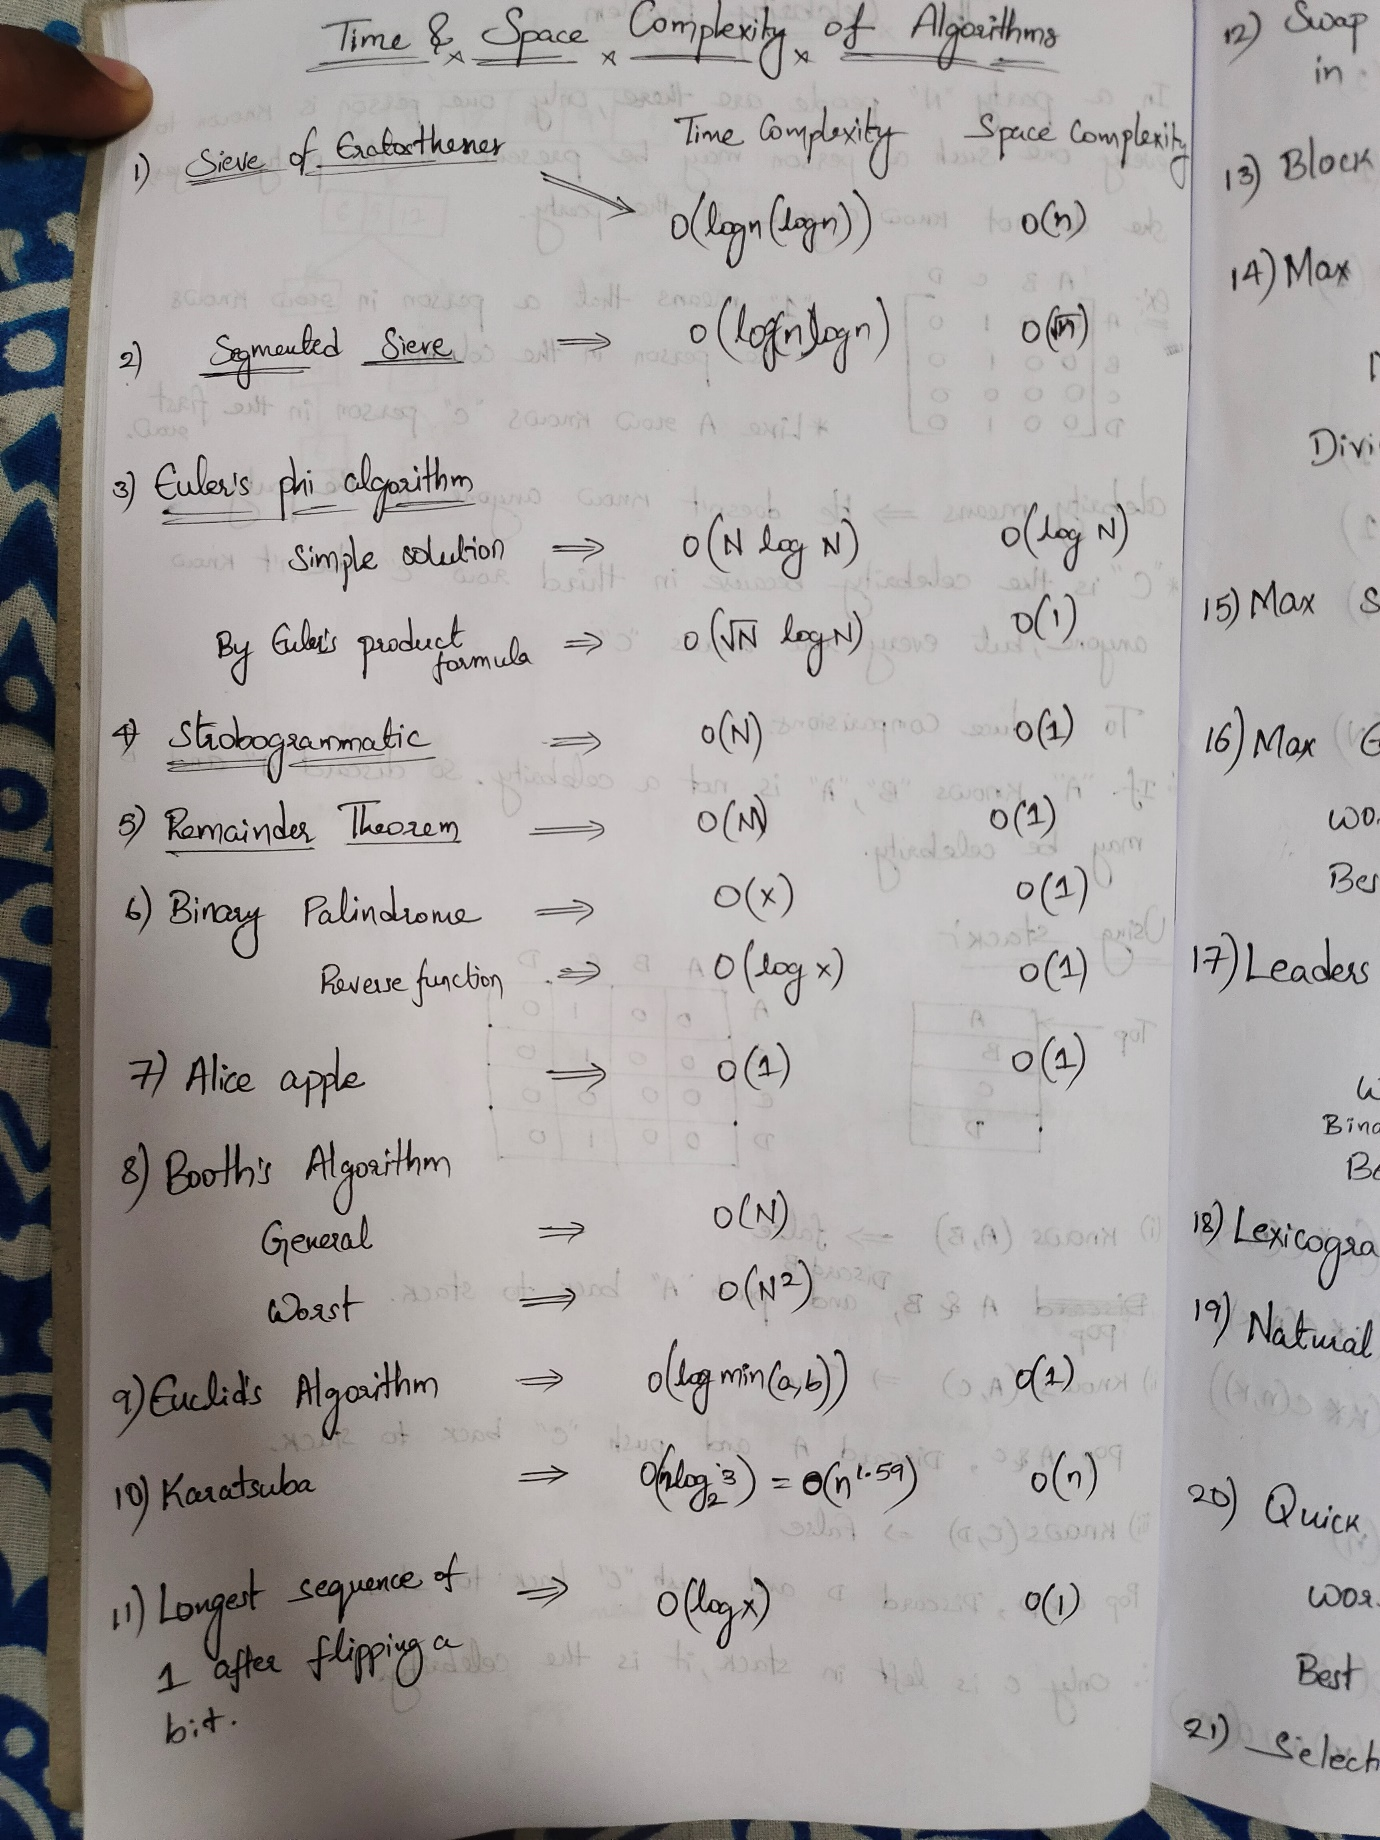 Time & Space Complexity of Algorithms
Time Complexity Space Complexity
1) Sieve of Eratosthenes
O(logn(logn)) O(n)
2) Segmented Sieve ⇒ O(log(n)logn) O(√n)
3) Euler's phi algorithm
Simple solution ⇒ O(N log N) O(log N)
By Euler's product formula ⇒ O(√N log N) O(1)
4) Strobogrammatic ⇒ O(N) O(1)
5) Remainder Theorem ⇒ O(M) O(1)
6) Binary Palindrome ⇒ O(x) O(1)
Reverse function ⇒ O(log x) O(1)
7) Alice apple ⇒ O(1) O(1)
8) Booth's Algorithm
General ⇒ O(N)
Worst ⇒ O(N²)
9) Euclid's Algorithm ⇒ O(log min(a,b)) O(1)
10) Karatsuba ⇒ O(nlog₂3) = O(n^1.59) O(n)
11) Longest sequence of ⇒ O(log x) O(1)
1 after flipping a
bit.
12) Swap
in
13) Block
14) Max
Divi
15) Max S
16) Max
Wo
Bes
17) Leaders
Bina
Be
18) Lexicogra
19) Natural
20) Quick
Wor
Best
21) Select